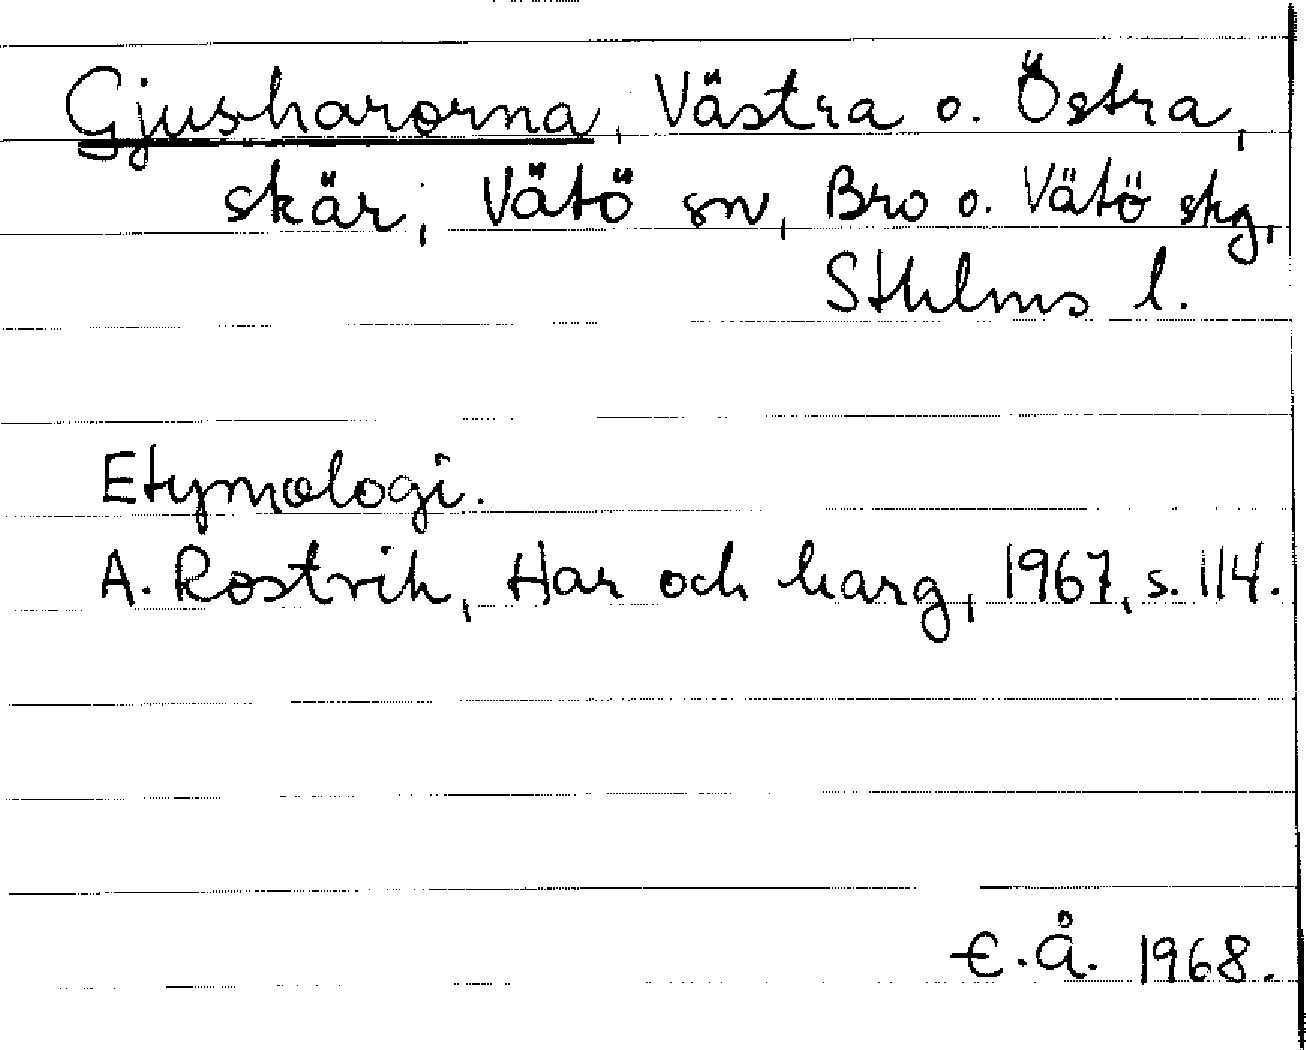 Gjusharorna, Västra o. Östra,
skär, Vätö sn, Bro o. Vätö skg,
Sthlms l.
Etymologi.
A. Rostvik, Har och harg, 1967, s. 114.
E. Å. 1968.